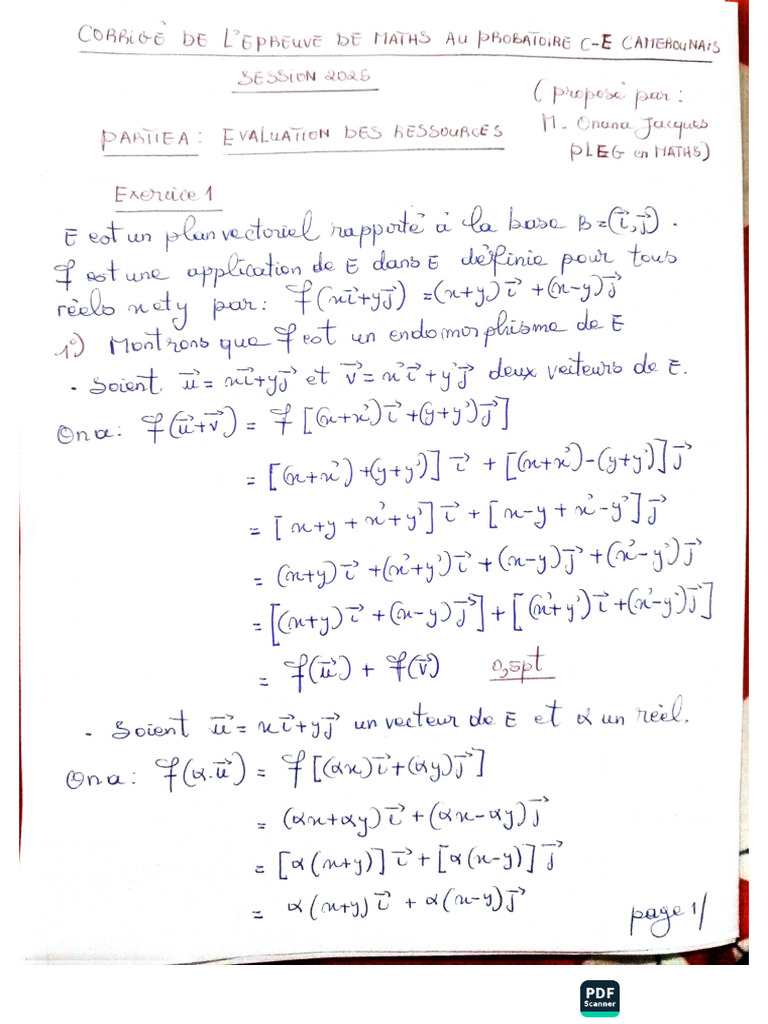 CORRIGÉ DE L'EPREUVE DE MATHS AU PROBATOIRE C-E CAMEROUNAIS
SESSION 2025
(proposé par :
M. Onana Jacques
PLEG en MATHS)
PARTIE A : EVALUATION DES RESSOURCES
Exercice 1
E est un plan vectoriel rapporté à la base B = (i⃗, j⃗).
f est une application de E dans E définie pour tous
réels x et y par : f(xi⃗+yj⃗) = (x+y)i⃗ + (x-y)j⃗
1°) Montrons que f est un endomorphisme de E
- Soient u⃗ = xi⃗+yj⃗ et v⃗ = x'i⃗ + y'j⃗ deux vecteurs de E.
On a : f(u⃗+v⃗) = f[(x+x')i⃗+(y+y')j⃗]
= [(x+x')+(y+y')]i⃗ + [(x+x')-(y+y')]j⃗
= [x+y + x'+y']i⃗ + [x-y + x'-y']j⃗
= (x+y)i⃗ + (x'+y')i⃗ + (x-y)j⃗ + (x'-y')j⃗
= [(x+y)i⃗ + (x-y)j⃗] + [(x'+y')i⃗ + (x'-y')j⃗]
= f(u⃗) + f(v⃗) 0,5pt
- Soient u⃗ = xi⃗+yj⃗ un vecteur de E et α un réel.
On a : f(α.u⃗) = f[(αx)i⃗+(αy)j⃗]
= (αx+αy)i⃗ + (αx-αy)j⃗
= [α(x+y)]i⃗ + [α(x-y)]j⃗
= α(x+y)i⃗ + α(x-y)j⃗
page 1/
PDF
Scanner